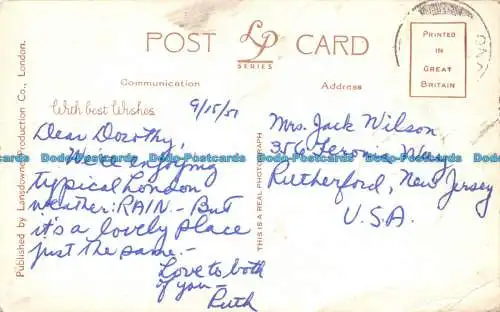 POST CARD
LP
SERIES
Communication
Address
PRINTED
IN
GREAT
BRITAIN
With best Wishes
9/15/51
Dear Dorothy,
We're enjoying
typical London
weather: RAIN. - But
it's a lovely place
just the same. -
Love to both
of you -
Ruth
Mrs. Jack Wilson
356 Way
Rutherford, New Jersey
U.S.A.
Published by Lansdowne Production Co., London.
THIS IS A REAL PHOTOGRAPH
Dodo-Postcards Dodo-Postcards Dodo-Postcards Dodo-Postcards Dodo-Postcards